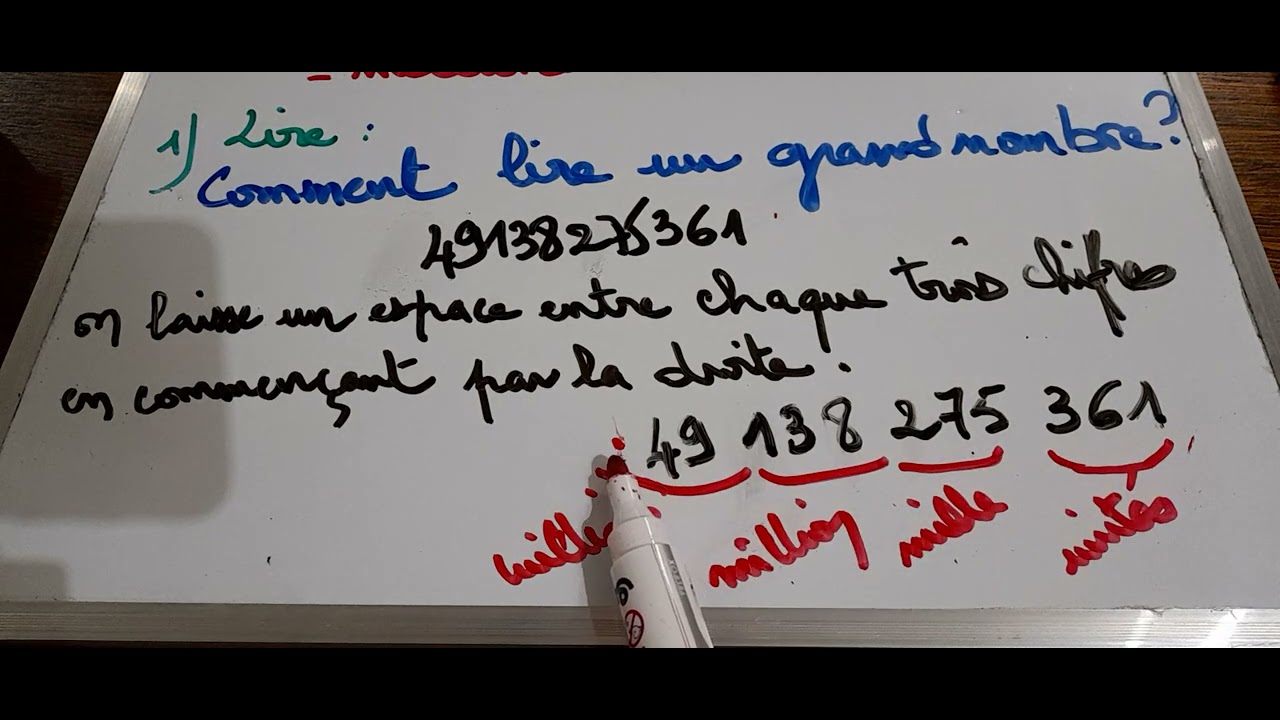 1) Lire :
Comment lire un grand nombre ?
49138275361
on laisse un espace entre chaque trois chifres
en commençant par la droite.
49 138 275 361
million mille unités